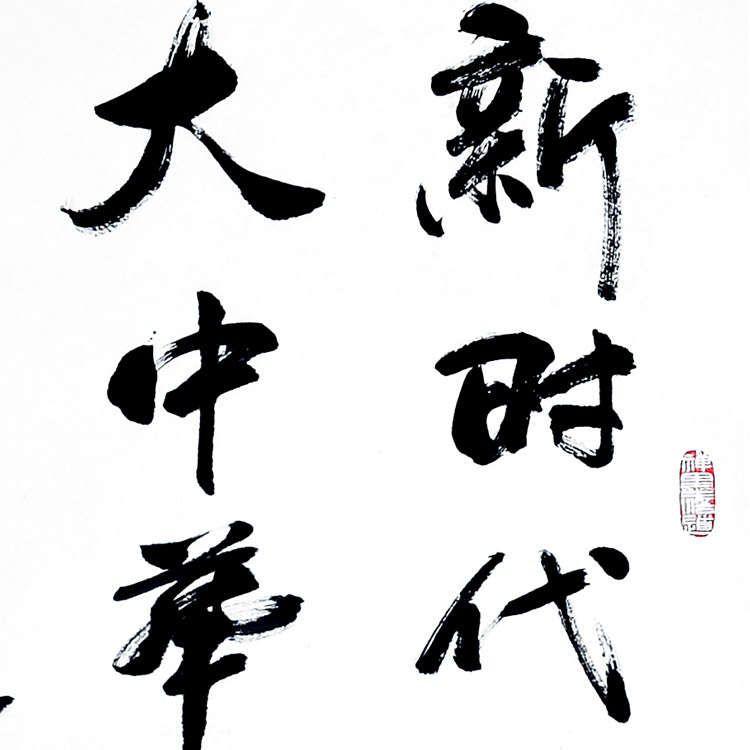 新时代
大中华